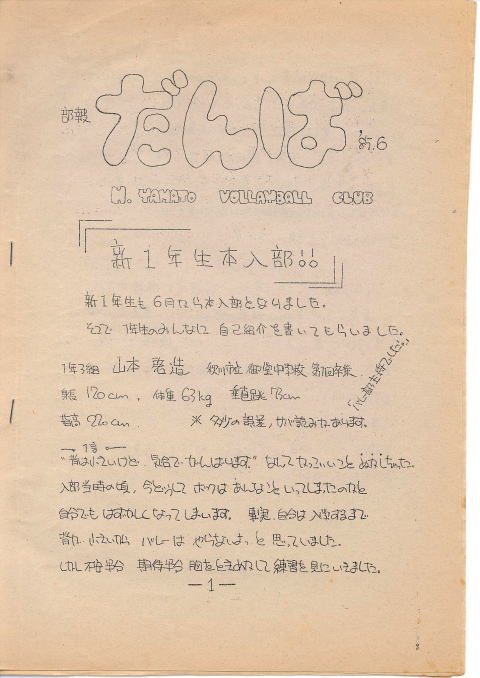 部報 だんば '85.6
H. YAMATO VOLLAYBALL CLUB
新1年生本入部!!
新1年生も6月から本入部となりました。
そこで 1年生のみんなに 自己紹介を書いてもらいました。
1年3組 山本 造 市立 中学校 卒業
「バレー部主将でした。」
身長 170cm, 体重 63kg 垂直跳 73cm
指高 220cm ※ 多少の誤差、サバ読みがあります。
一言
"背は小さいけど、気合でがんばります。" なんてなっていいこと ぬかしちゃった。
入部当時の頃、今どうして ボクは あんなこと いってしまったのかと
自分でも はずかしくなってしまいます。 事実、自分は 入学するまで
背が 小さいから バレーは やらないよっ と思っていました。
しかし 不安半分 期待半分 胸をときめかして 練習を見にいきました。
—1—